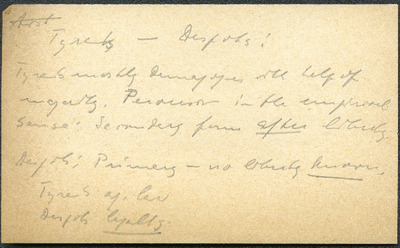 Arist
Tyrants — Despots:
Tyrants mostly demagogues with help of
majority. Persecution in the empirical
sense: Secondary form after liberty.
Despots: Primary — no liberty known.
Tyrants ag. law
Despots legally.